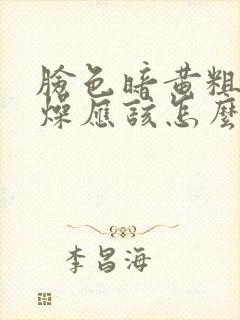 臉色暗黃粗
燥應該怎麼
李昌海